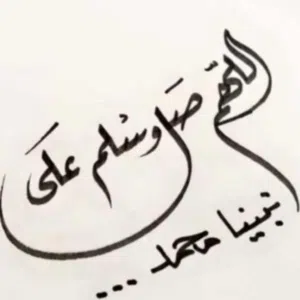 اللهم صل وسلم على
نبينا محمد ...